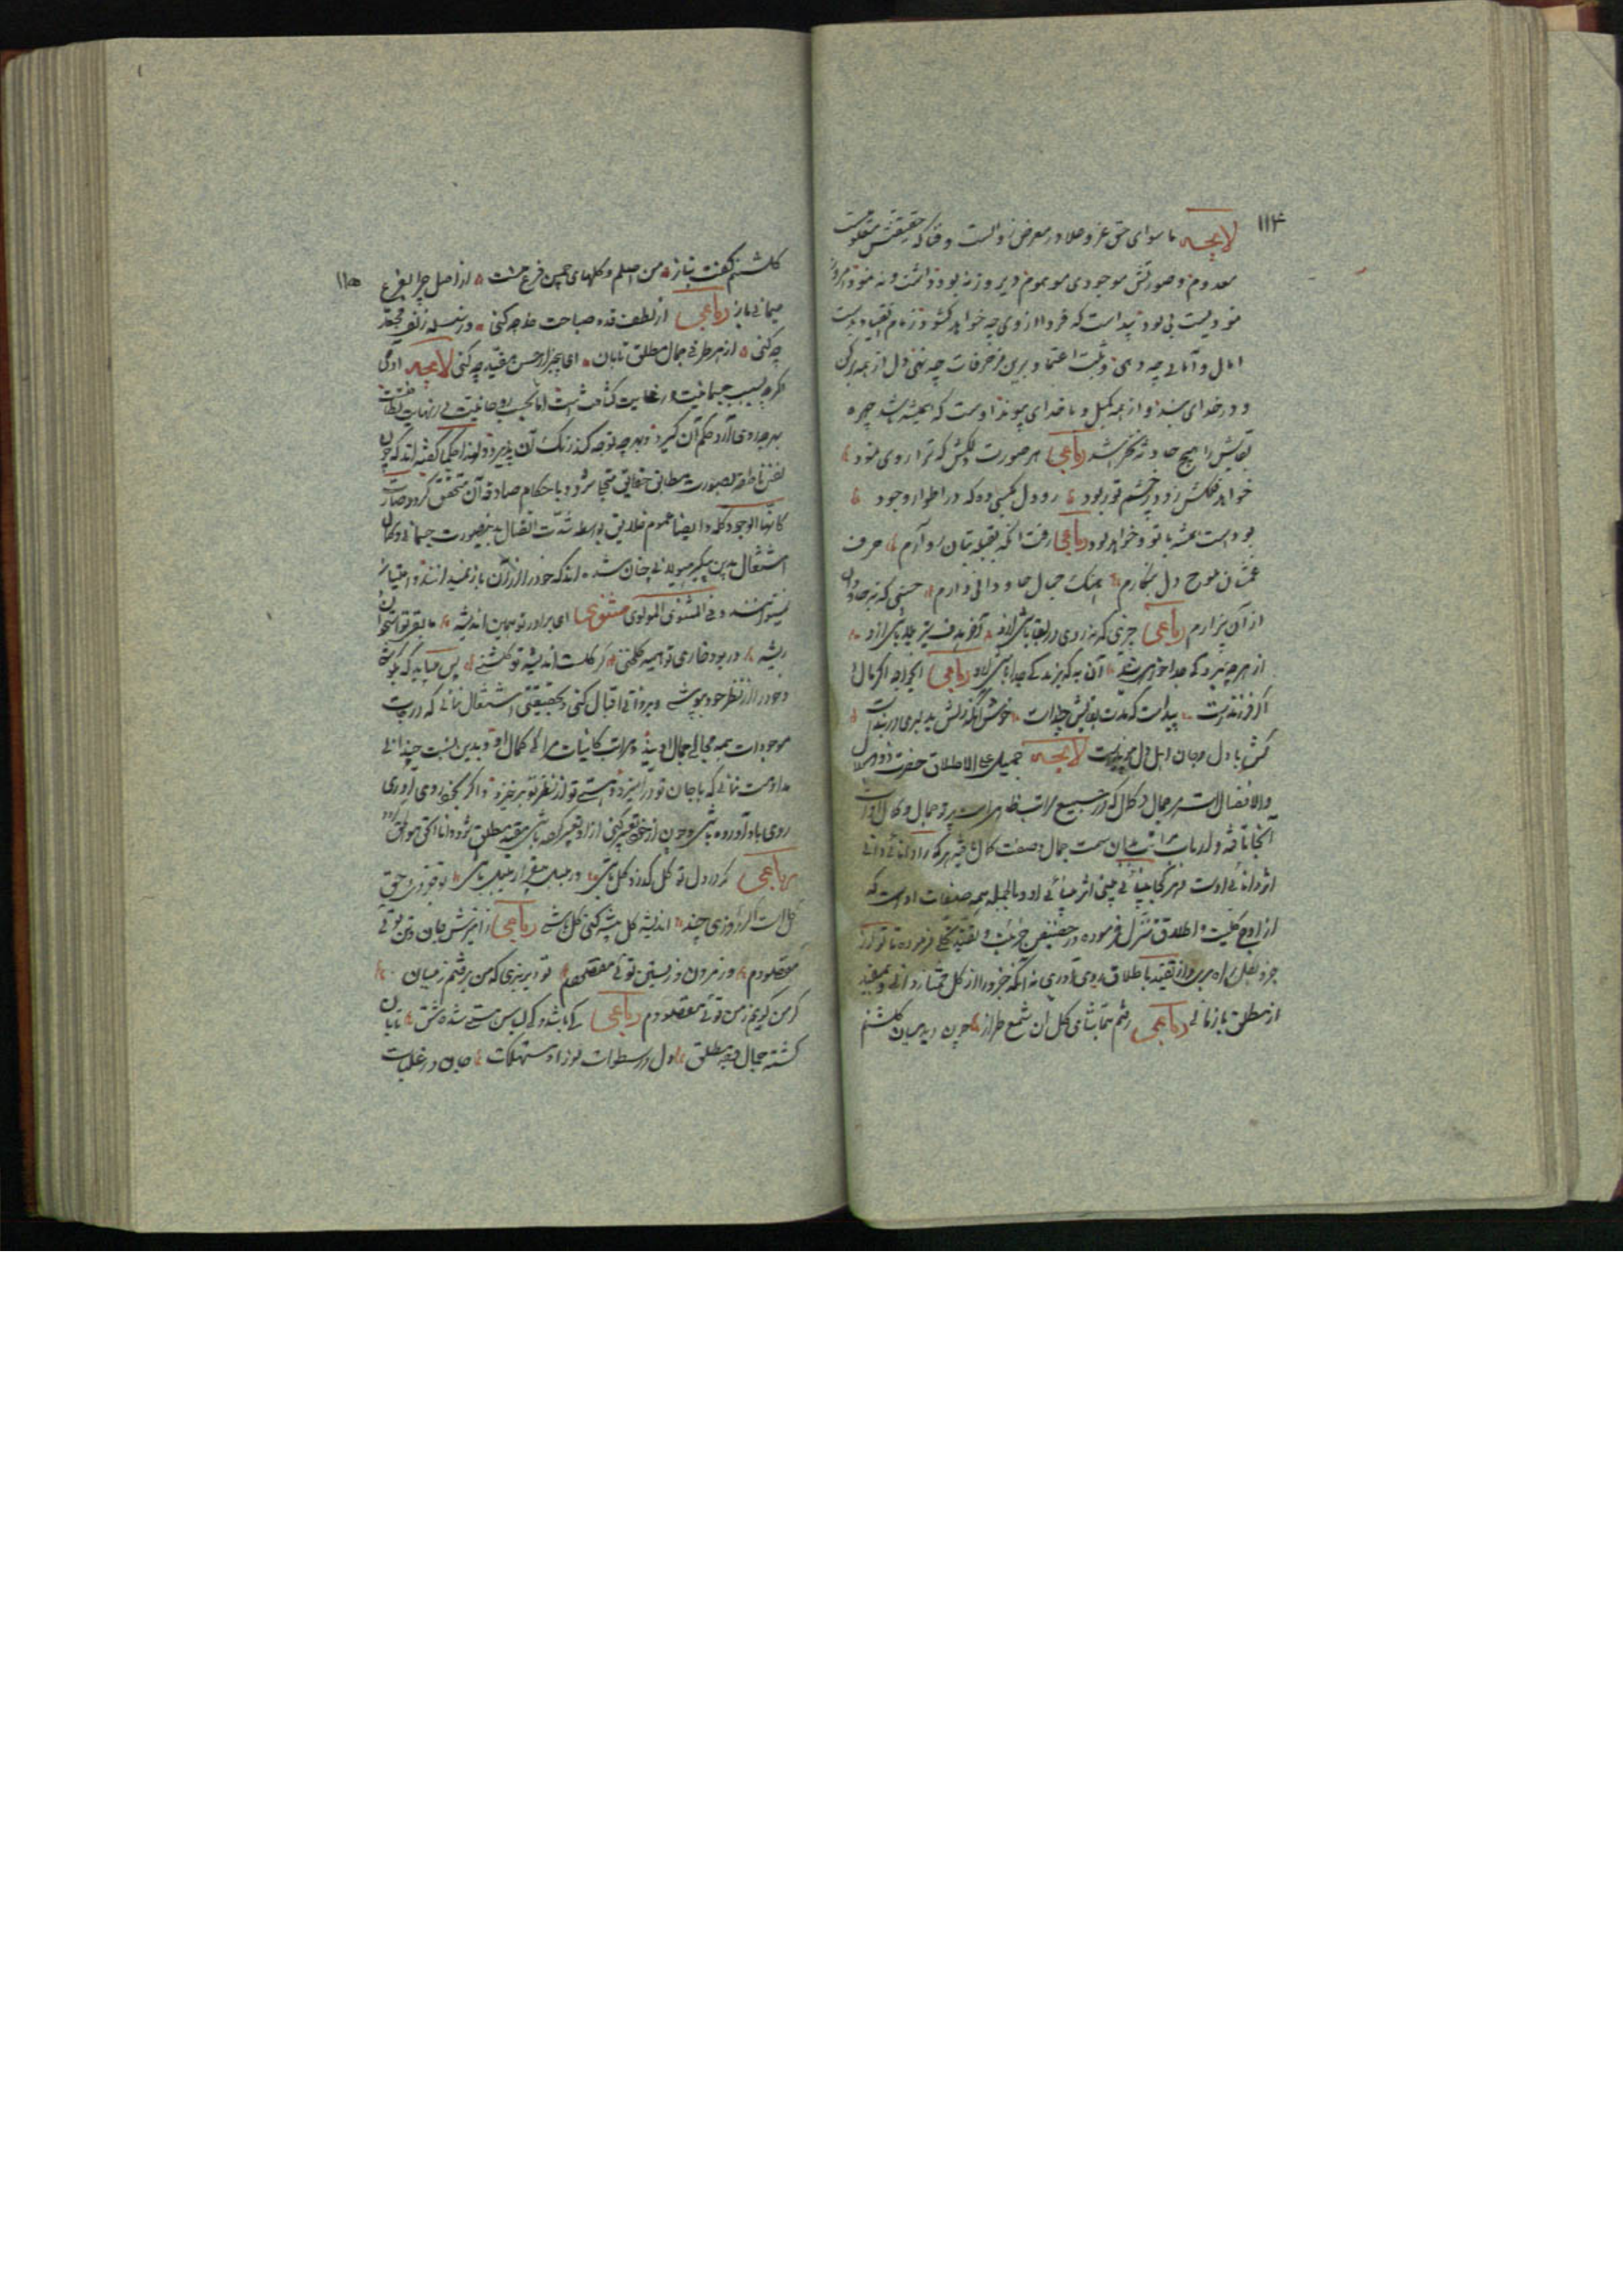 ۱۱۴
لایحه ما سوای حق عز و علا در معرض زوالست و فنا که حقیقتش معلومیست
معدوم و صورتش موجودی موهوم دیروز نه بود داشت و نه نمود و امروز
نمودیست بی بود پیداست که فردا از وی چه خواهد کشود زمام انقیاد بدست
امال و امانی چه دهی و پشت اعتماد برین مزخرفات چه نهی دل از همه برکن
و در خدای بند و از همه بکسل و با خدای پیوند اوست که همیشه باشد چهره
بقایش را هیچ حادثه نخراشد رباعی هر صورت دلکش که ترا روی نمود
خواهد فلکش زود ز چشم تو ربود رو دل بکسی ده که در اطوار وجود
بودست همیشه با تو و خواهد بود رباعی رفت آنکه بقبله بتان رو آرم حرف
غمشان بلوح دل بنگارم آهنگ جمال جاودانی دارم حسنی که نه جاودان
از آن بیزارم رباعی چیزی که نه روی در بقا باشی ازو آخر هدف تیر بلا باشی ازو
از هر چه بمردگی جدا خواهی شد آن به که بزندگی جدا باشی ازو رباعی ایخواجه اگر مال و
اگر فرزندست پیداست که مدت بقایش چندست خوش آنکه دلش بدلبری دربندست
کش با دل و جان اهل دل پیوندست لایحه جمیل علی الاطلاق حضرت ذوالجلال
والافضال است هر جمال و کمال که در جمیع مراتب ظاهرست پرتو جمال و کمال اوست
آنجا تافته و ارباب مراتب بدان سمت جمال و صفت کمال یافته هر کرا دانائی دانی
اثر دانائی اوست و هر کجا بینائی بینی اثر بینائی او و بالجمله همه صفات اوست که
از اوج کلیت و اطلاق تنزل فرموده در حضیض جزئیت و تقید تجلی فرموده تا تو از
جزو بکل راه بری و از تقید باطلاق روی آوری نه آنکه جزو را از کل ممتاز دانی و بمقید
از مطلق بازمانی رباعی رفتم بتماشای گل آن شمع طراز چون دید میان گلشنم
۱۱۵
گلشنم گفت بناز من اصلم و گلهای چمن فرع منست از اصل چرا بفرع
میمانی باز رباعی از لطف قد و صباحت خد چه کنی وز سلسله زلف مجعد
چه کنی از هر طرفی جمال مطلق تابان ای بیخبر از حسن مقید چه کنی لایحه آدمی
اگرچه بسبب جسمانیت در غایت کثافت است اما بحسب روحانیت در نهایت لطافتست
بهرچه روی آرد حکم آن گیرد و بهرچه توجه کند رنگ آن پذیرد و لهذا حکما گفته اند که چون
نفس ناطقه بصورت مطابق حقایق متجلی شود و باحکام صادقه آن متحقق گردد صارت
کانها الوجود کله و ایضا عموم خلایق بواسطه شدت اتصال بدین صورت جسمانی و کمال
اشتغال بدین پیکر هیولانی چنان شده اند که خود را از آن باز نمیدانند و امتیاز
نمیتوانند و فی المثنوی المولوی مثنوی ای برادر تو همین اندیشه ما بقی تو استخوان و
ریشه ور بود خاری تو هیمه گلخنی گر گلست اندیشه تو گلشنی پس میباید که بکوشی و
خود را از نظر خود بپوشی و بر ذاتی اقبال کنی و بحقیقتی اشتغال نمائی که درجات
موجودات همه مجالی جمال اویند و مراتب کائنات مرائی کمال او و بدین نسبت چندانی
مداومت نمائی که با جان تو درآمیزد و هستی تو از نظر تو برخیزد و اگر بخود روی آوری
روی باو آورده باشی و چون از خود تعبیر کنی از او تعبیر کرده باشی مقید مطلق شود و انا الحق هو الحق گردد
رباعی گر در دل تو گل گذرد گل باشی ور بلبل بیقرار بلبل باشی تو جزوی و حق
کل است اگر روزی چند اندیشه کل پیشه کنی کل باشی رباعی ز آمیزش جان و تن توئی
مقصودم وز مردن و زیستن توئی مقصودم تو دیر بزی که من برفتم ز میان
گر من گویم ز من توئی مقصودم رباعی کی باشد و کی لباس هستی شده شق تابان
گشته جمال وجه مطلق دل در سطوات نور او مستهلک جان در غلبات